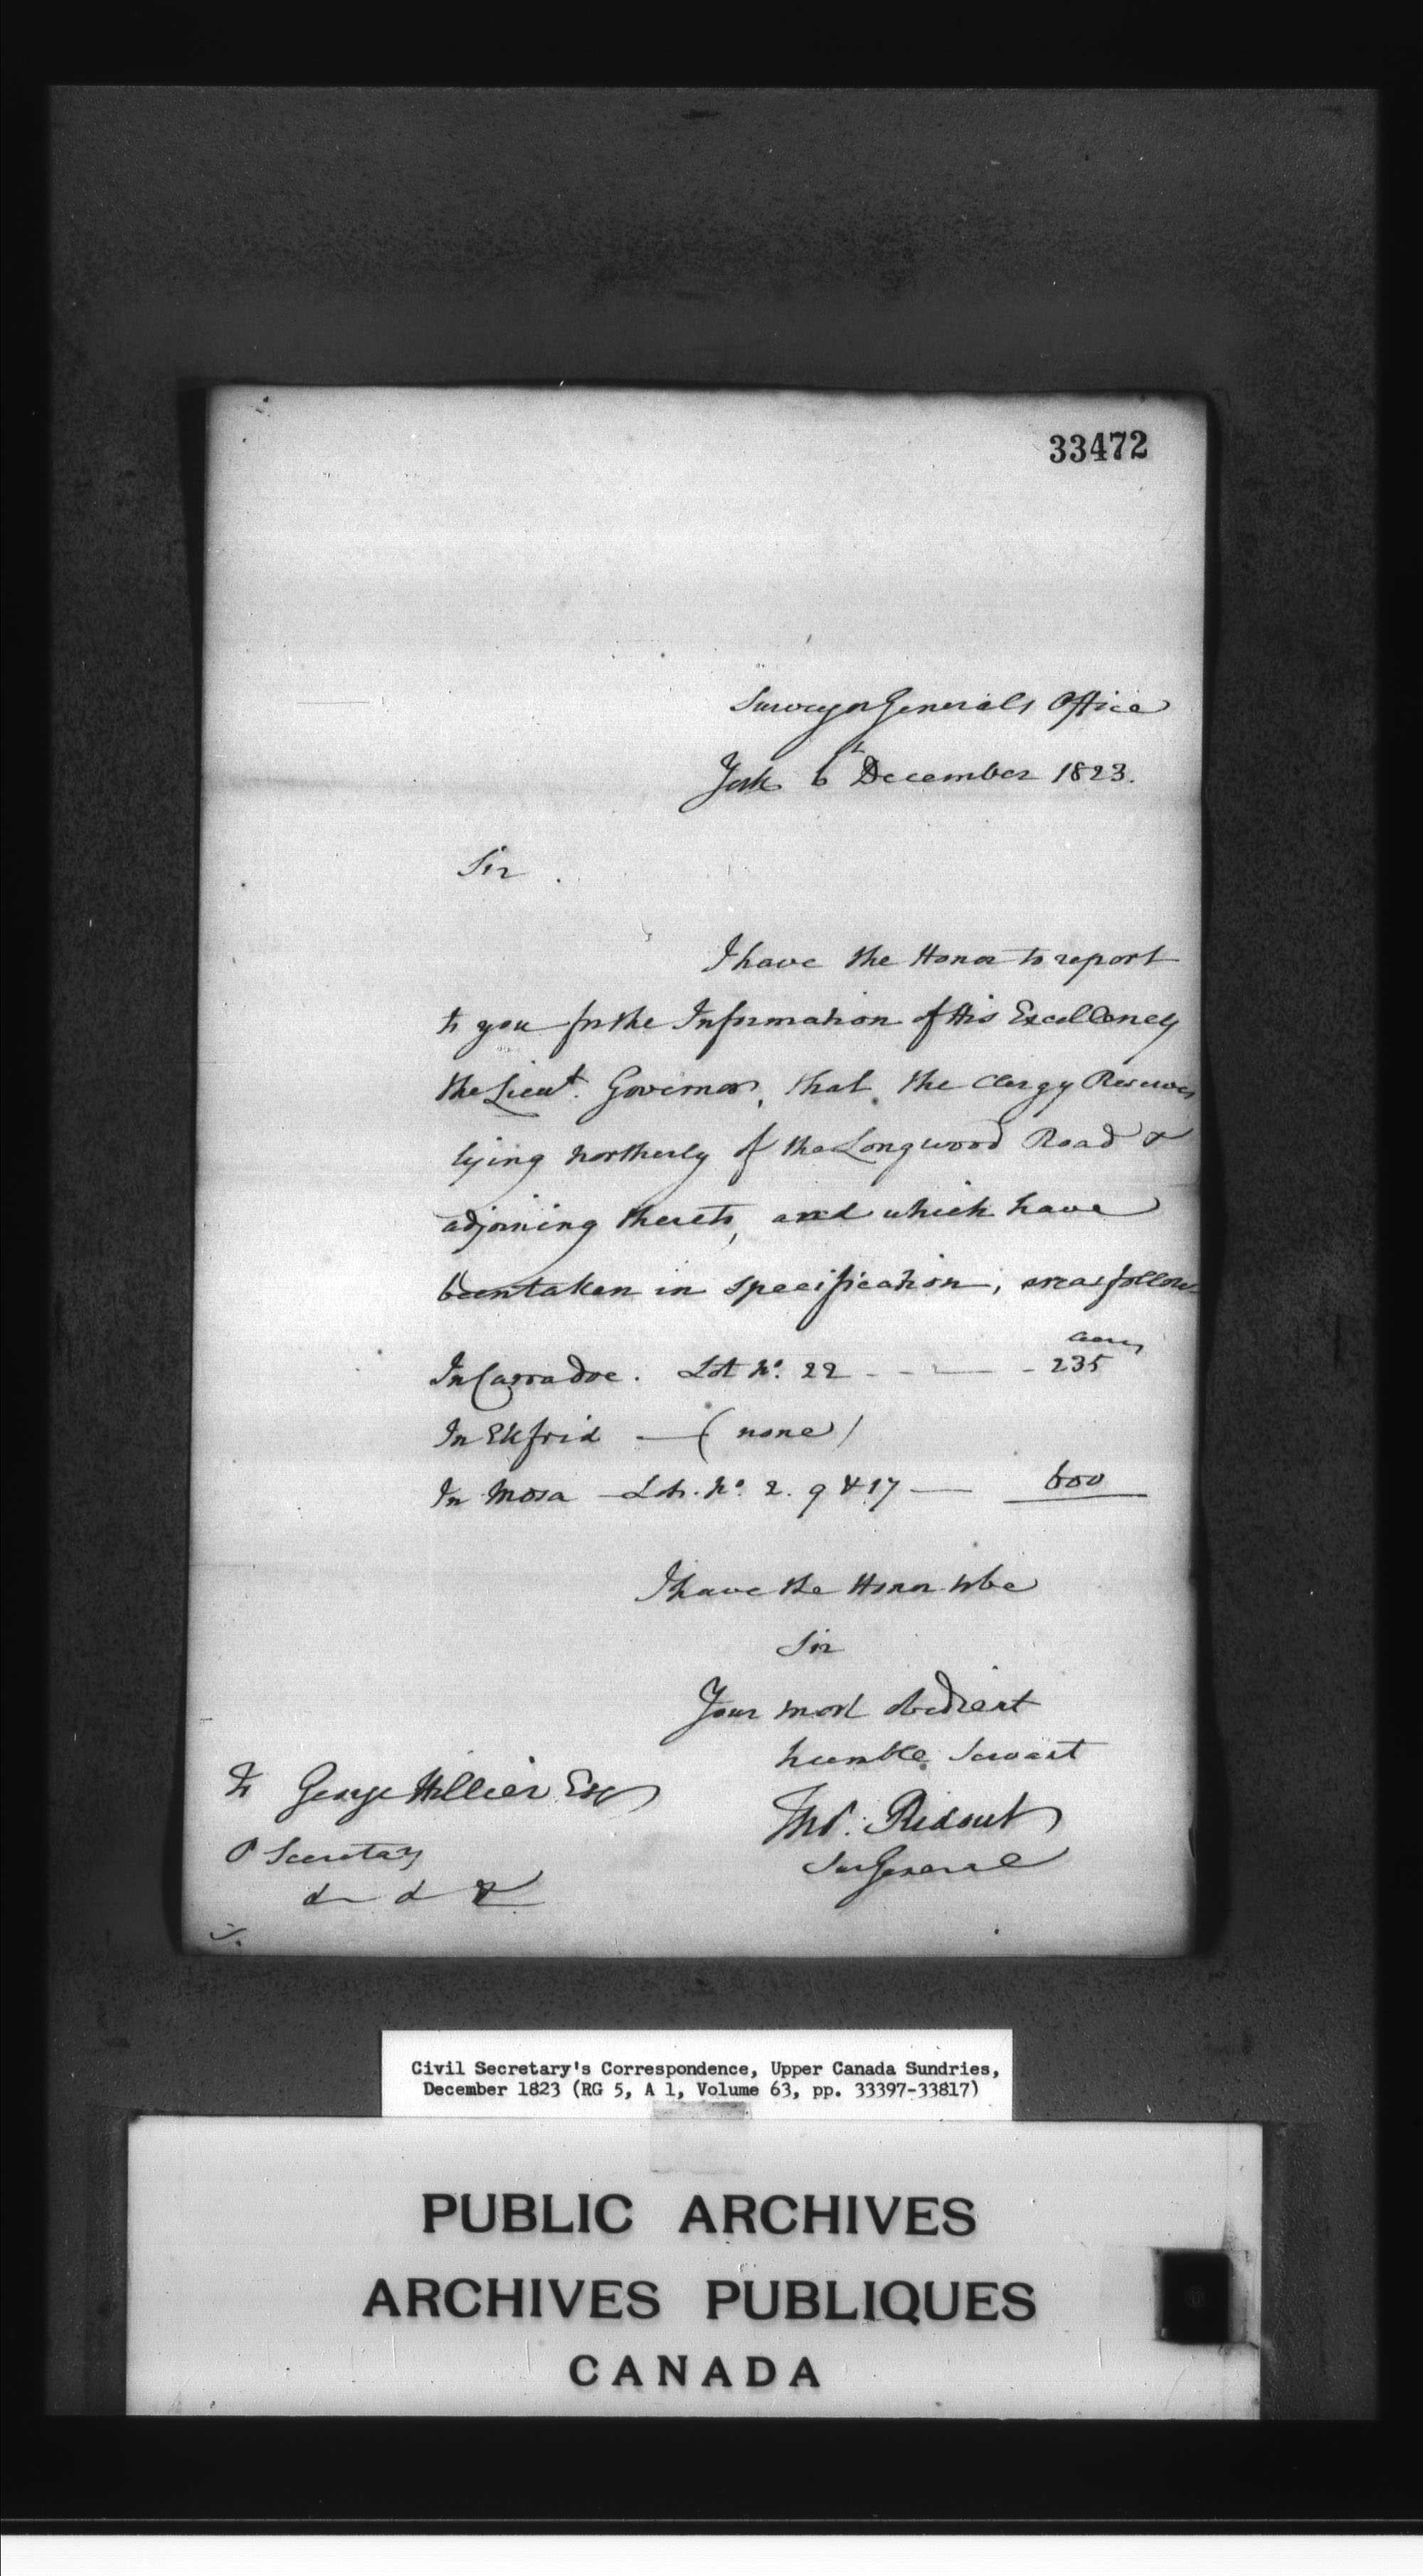 33472
Surveyor Generals Office
York 6th December 1823.
Sir
I have the Honor to report
to you for the Information of His Excellency
the Lieut. Governor, that the Clergy Reserves
lying northerly of the Longwood Road &
adjoining thereto, and which have
been taken in specification, are as follows
acres
In Carradoc. Lot No. 22 - - - - 235
In Ekfrid — (none)
In Mosa — Lots. No. 2. 9 & 17 — 600
I have the Honor to be
Sir
Your most obedient
humble Servant
To George Hillier Esq
Thos. Ridout
P Secretary
Sur General
Civil Secretary's Correspondence, Upper Canada Sundries,
December 1823 (RG 5, A 1, Volume 63, pp. 33397-33817)
PUBLIC ARCHIVES
ARCHIVES PUBLIQUES
CANADA